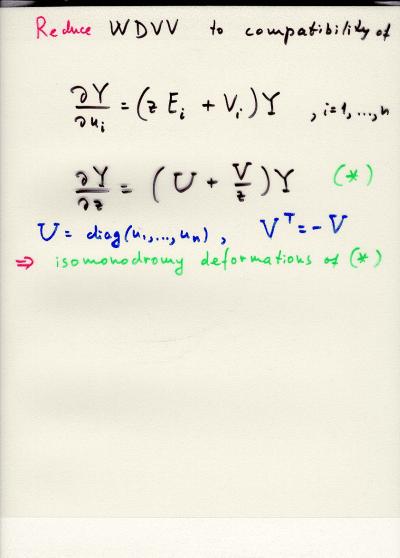 Reduce WDVV to compatibility of
∂Y/∂u_i = (z E_i + V_i) Y , i=1,...,n
∂Y/∂z = (U + V/z) Y (*)
U = diag(u_1,...,u_n), V^T = -V
⇒ isomonodromy deformations of (*)